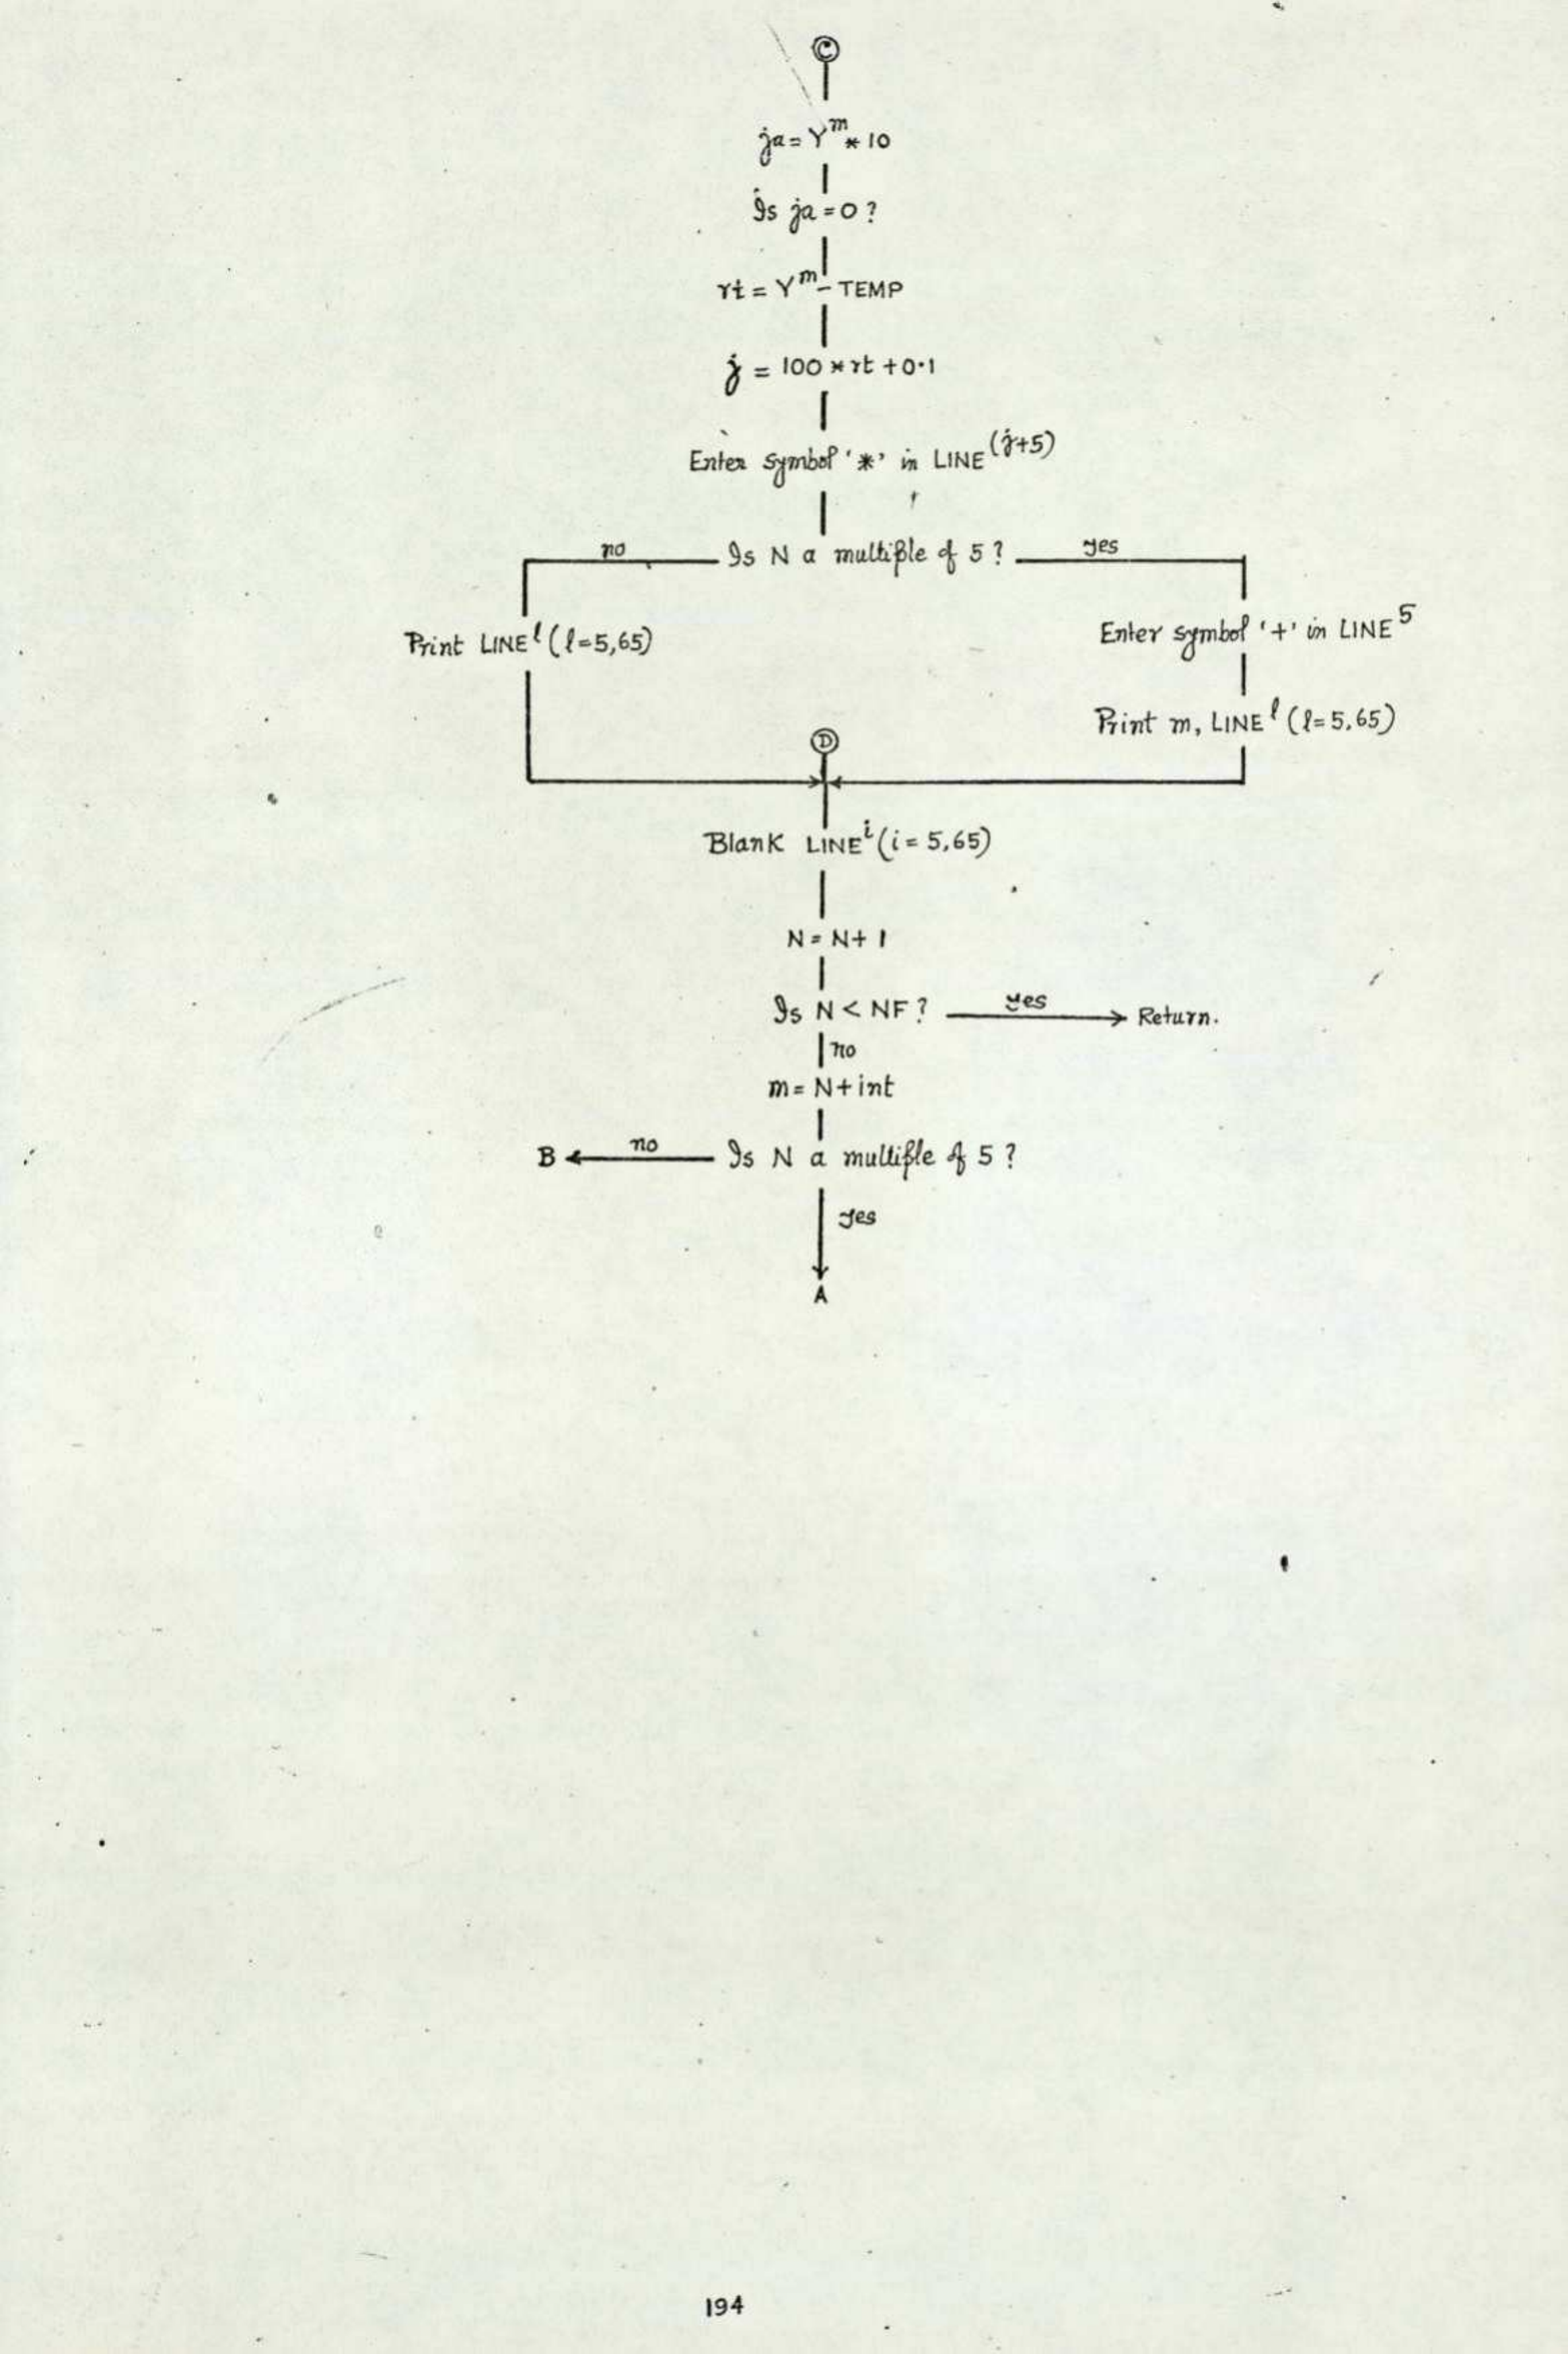 C
ja = Y^m * 10
Is ja = 0 ?
rt = Y^m - TEMP
j = 100 * rt + 0·1
Enter symbol '*' in LINE^(j+5)
no Is N a multiple of 5 ? yes
Print LINE^l (l=5,65)
Enter symbol '+' in LINE^5
Print m, LINE^l (l=5,65)
D
Blank LINE^i (i = 5,65)
N = N + 1
Is N < NF ? yes Return.
no
m = N + int
B no Is N a multiple of 5 ?
yes
A
194